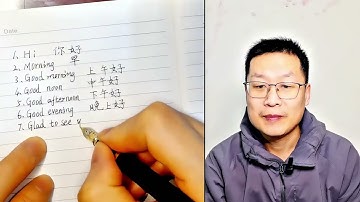 Date
1. Hi 你好
2. Morning 早
3. Good morning 上午好
4. Good noon 中午好
5. Good afternoon 下午好
6. Good evening 晚上好
7. Glad to see